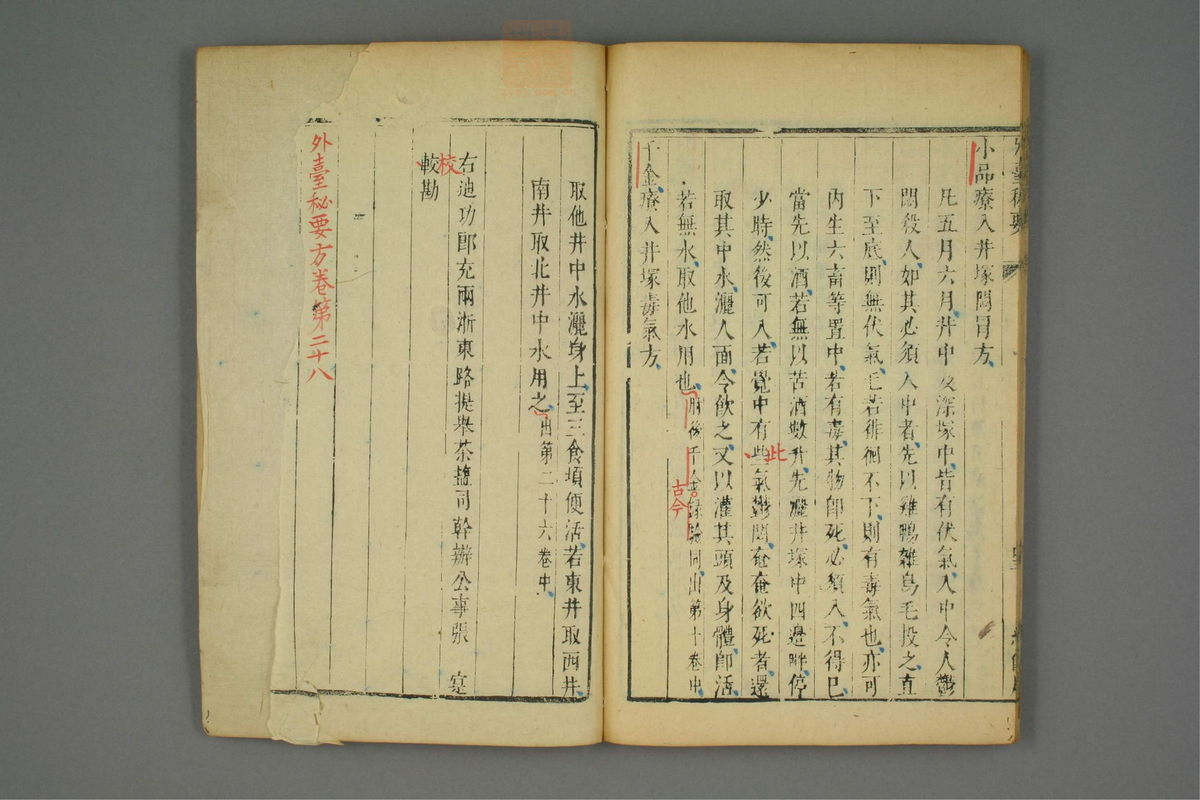 外臺秘要
小品療入井塚悶冒方
凡五月六月井中及深塚中皆有伏氣入中令人鬱
悶殺人如其必須入中者先以雞鴨雜鳥毛投之直
下至底則無伏氣毛若徘徊不下則有毒氣也亦可
内生六畜等置中若有毒其物即死必須入不得已
當先以酒若無以苦酒數升先灑井塚中四邊畔停
少時然後可入若覺中有些氣鬱悶奄奄欲死者還
此
取其中水灑人面令飲之又以灌其頭及身體即活
若無水取他水用也肘後千金録驗同出第十卷中
古今
千金療入井塚毒氣方
取他井中水灑身上至三食頃便活若東井取西井
南井取北井中水用之出第二十六卷中
右迪功郎充兩浙東路提舉茶鹽司幹辦公事張寔
校
較勘
外臺秘要方卷第二十八